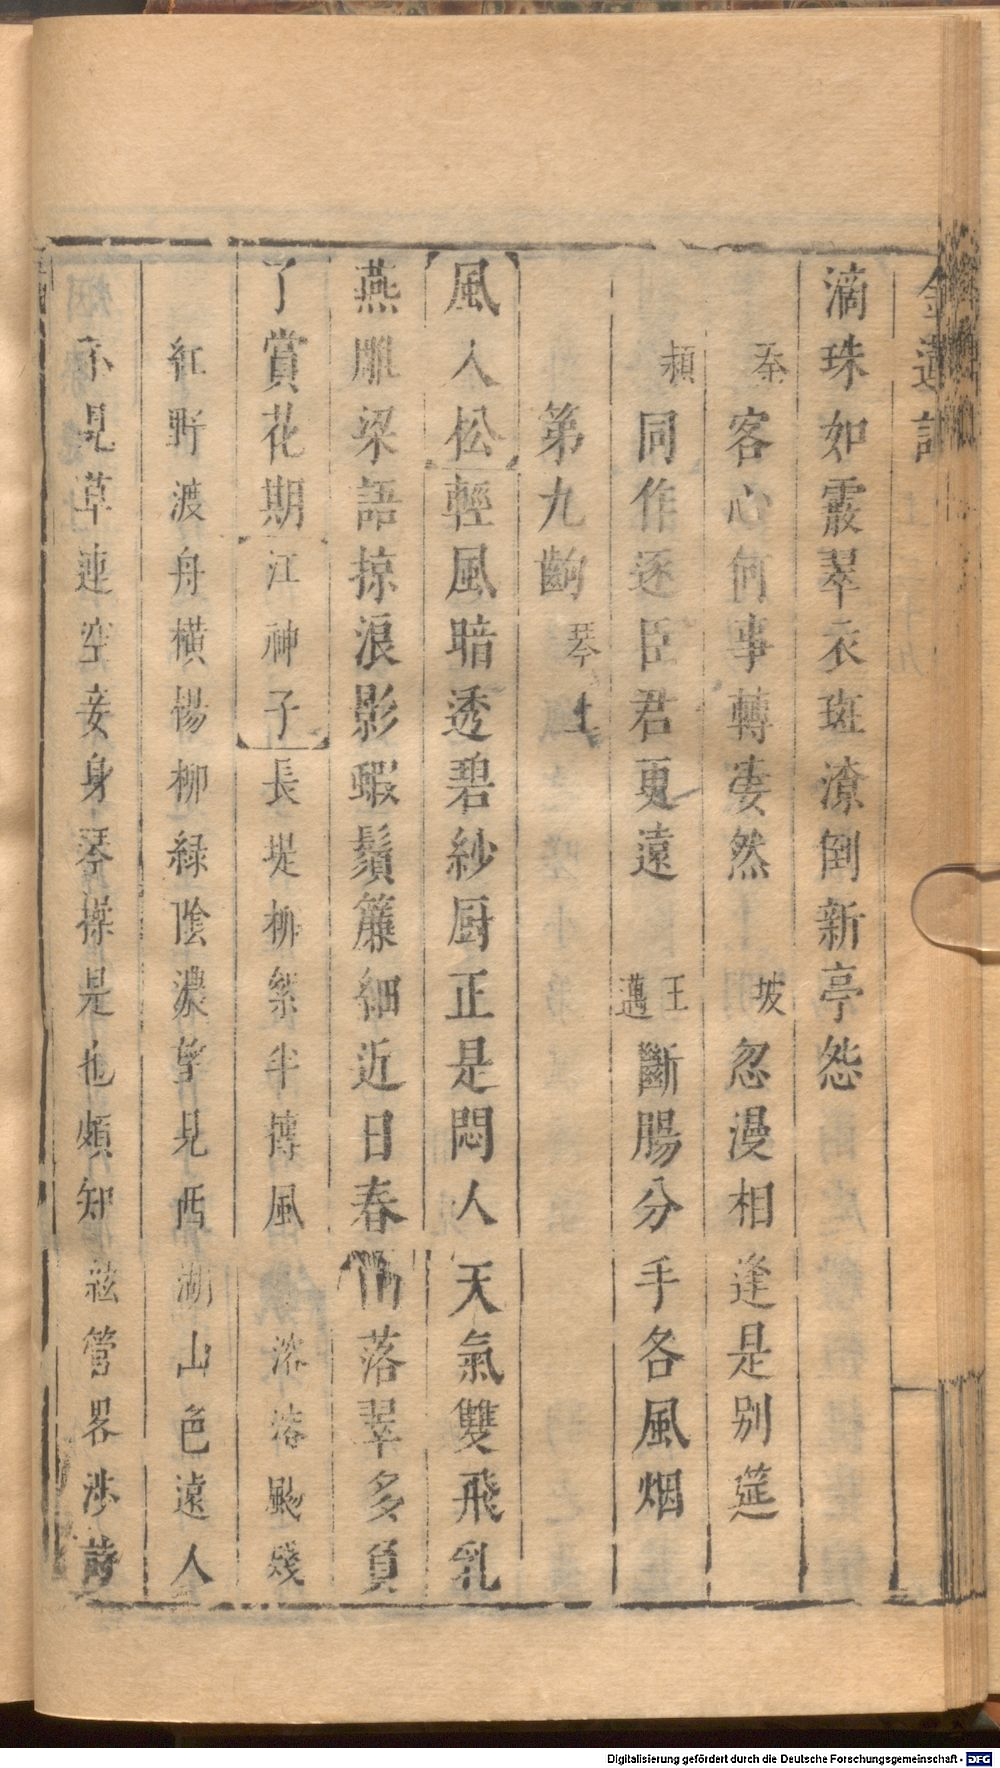 金蓮記
滴珠如霰翠衣斑潦倒新亭怨
秦客心何事轉淒然 坡忽漫相逢是别筵
頼同作逐臣君更遠 王邁斷腸分手各風烟
第九齣 琴上
風入松輕風暗透碧紗厨正是悶人天氣雙飛乳
燕雕梁語掠浪影蝦鬚簾細近日春 落翠多負
了賞花期江神子長堤柳絮半摶風 溶溶颺殘
紅野渡舟橫楊柳緑陰濃望見西湖山色遠人
不見草連空妾身琴操是也頗知絃管畧涉詩
Digitalisierung gefördert durch die Deutsche Forschungsgemeinschaft - DFG